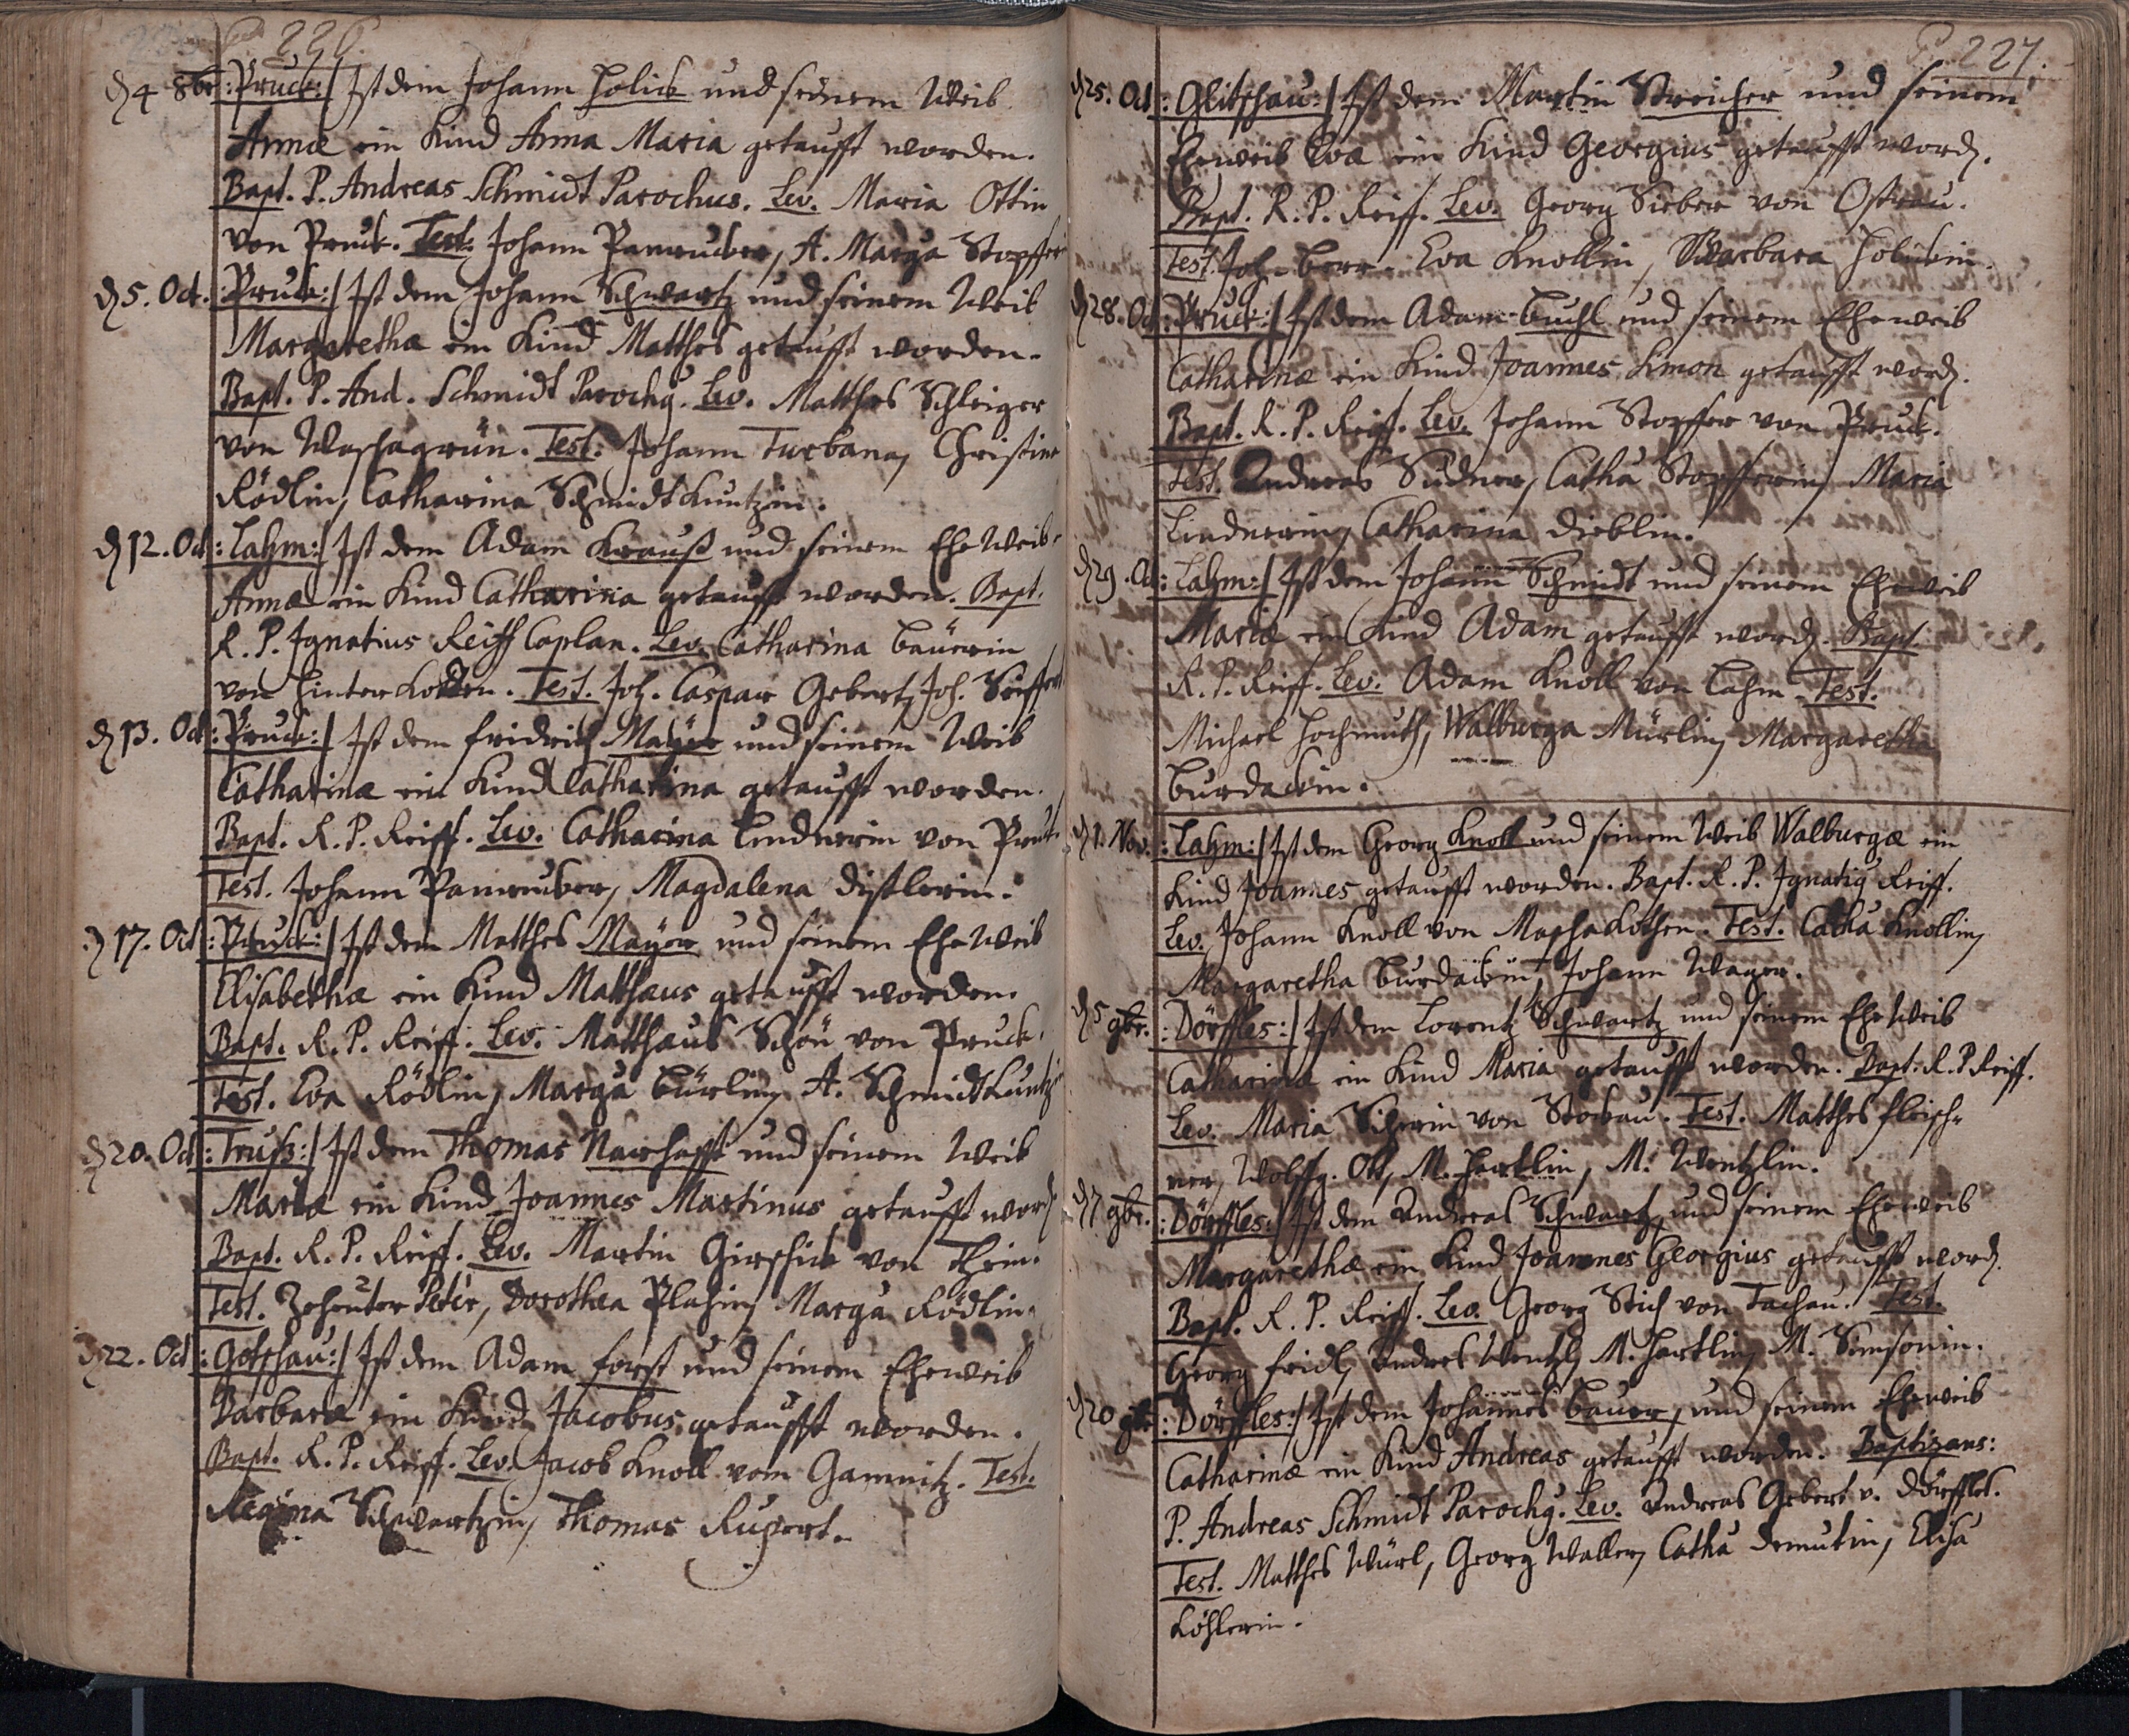 226.
d 4 8br :Pruck:/ Ist dem Johann Holick und seinem Weib
Annæ ein Kind Anna Maria getaufft worden.
Bapt. P. Andreas Schmidt Parochus. Lev. Maria Ottin
von Pruck. Test. Johann Pamruber, A. Marga Stopffer
d 5. Oct. :Pruck:/ Ist dem Johann Schwartz und seinem Weib
Margarethæ ein Kind Matthes getaufft worden.
Bapt. P. And. Schmidt Parochq. Lev. Matthes Schleiger
von Waschagrün. Test: Johann Turbana, Christina
Rödlin, Catharina Schmidtkuntzin.
d 12. Oct :Lahm:/ Ist dem Adam Krauß und seinem Ehe Weib
Annæ ein Kind Catharina getaufft worden. Bapt.
R. P. Ignatius Reiff Caplan. Lev. Catharina Bäurin
von Hinter Kotten. Test. Joh. Caspar Gebert, Joh. Seiffert
d 13. Oct :Pruck:/ Ist dem Fridrich Mayer und seinem Weib
Catharinæ ein Kind Catharina getaufft worden.
Bapt. R. P. Reiff. Lev. Catharina Lindnerin von Pruk
Test. Johann Pamruber, Magdalena Distlerin.
d 17. Oct :Pruck:/ Ist dem Matthes Mayer und seinem Ehe Weib
Elisabethæ ein Kind Matthæus getaufft worden.
Bapt. R. P. Reiff. Lev. Matthæus Schön von Pruck.
Test. Eva Rödlin, Marga Bürlin, A. Schmidtkuntzin
d 20. Oct :Truß:/ Ist dem Thomas Narhafft und seinem Weib
Mariæ ein Kind Joannes Martinus getaufft word
Bapt. R. P. Reiff. Lev. Martin Girschick von Thein.
Test. Zehenter Peter, Dorothea Plahin, Marga Rödlin.
d 22. Oct :Gotschau:/ Ist dem Adam Forst und seinem Eheweib
Barbaræ ein Kind Jacobus getaufft worden.
Bapt. R. P. Reiff. Lev. Jacob Knoll vom Gamnitz. Test.
Regina Schwartzin, Thomas Rupert.
P. 227.
d 25. Oct :Glitschau:/ Ist dem Martin Streicher und seinem
Eheweib Evæ ein Kind Georgius getaufft word.
Bapt. R. P. Reiff. Lev. Georg Sieber von Ostrau.
Test. Joh. Berr. Eva Knollin, Barbara Holickin.
d 28. Oct :Pruck:/ Ist dem Adam Buchl und seinem Eheweib
Catharinæ ein Kind Joannes Simon getaufft word.
Bapt. R. P. Reiff. Lev. Johann Stopffer von Pruck.
Test. Andreas Südner, Catha Stopfferin, Maria
Lindnerin, Catharina Dieblin.
d 29. Oct :Lahm:/ Ist dem Johann Schmidt und seinem Eheweib
Mariæ ein Kind Adam getaufft word. Bapt
R. P. Reiff. Lev. Adam Knoll von Lahm. Test.
Michael Hochmuth, Walburga Mürlin, Margaretha
Burdackin.
d 1. Nov. :Lahm:/ Ist dem Georg Knoll und seinem Weib Walburgæ ein
Kind Joannes getaufft worden. Bapt. R. P. Ignatiq Reiff.
Lev. Johann Knoll von Maschakothen. Test. Catha Knollin,
Margaretha Burdackin, Johann Wager.
d 5 9br. :Dörffles:/ Ist dem Lorentz Schwartz und seinem Ehe Weib
Catharinæ ein Kind Maria getaufft worden. Bapt. R. P. Reiff.
Lev. Maria Sicherin von Stockau. Test. Matthes Fleisch-
ner, Wolffg. Ott, M. Hartlin, M. Wentzlin.
d 7 9br. :Dörffles:/ Ist dem Andreas Schwartz und seinem Eheweib
Margarethæ ein Kind Joannes Georgius getaufft word.
Bapt. R. P. Reiff. Lev. Georg Stich von Tachau. Test.
Georg Fridl, Andres Wentzl, M. Hartlin, M. Simsonin.
d 20 9br :Dörffles:/ Ist dem Johannes Bauer, und seinem Eheweib
Catharinæ ein Kind Andreas getaufft worden. Baptizans:
P. Andreas Schmidt Parochq. Lev. Andreas Gebert v. Dörffles.
Test. Matthes Würl, Georg Waller, Catha Demutin, Elisa
Köhlerin.